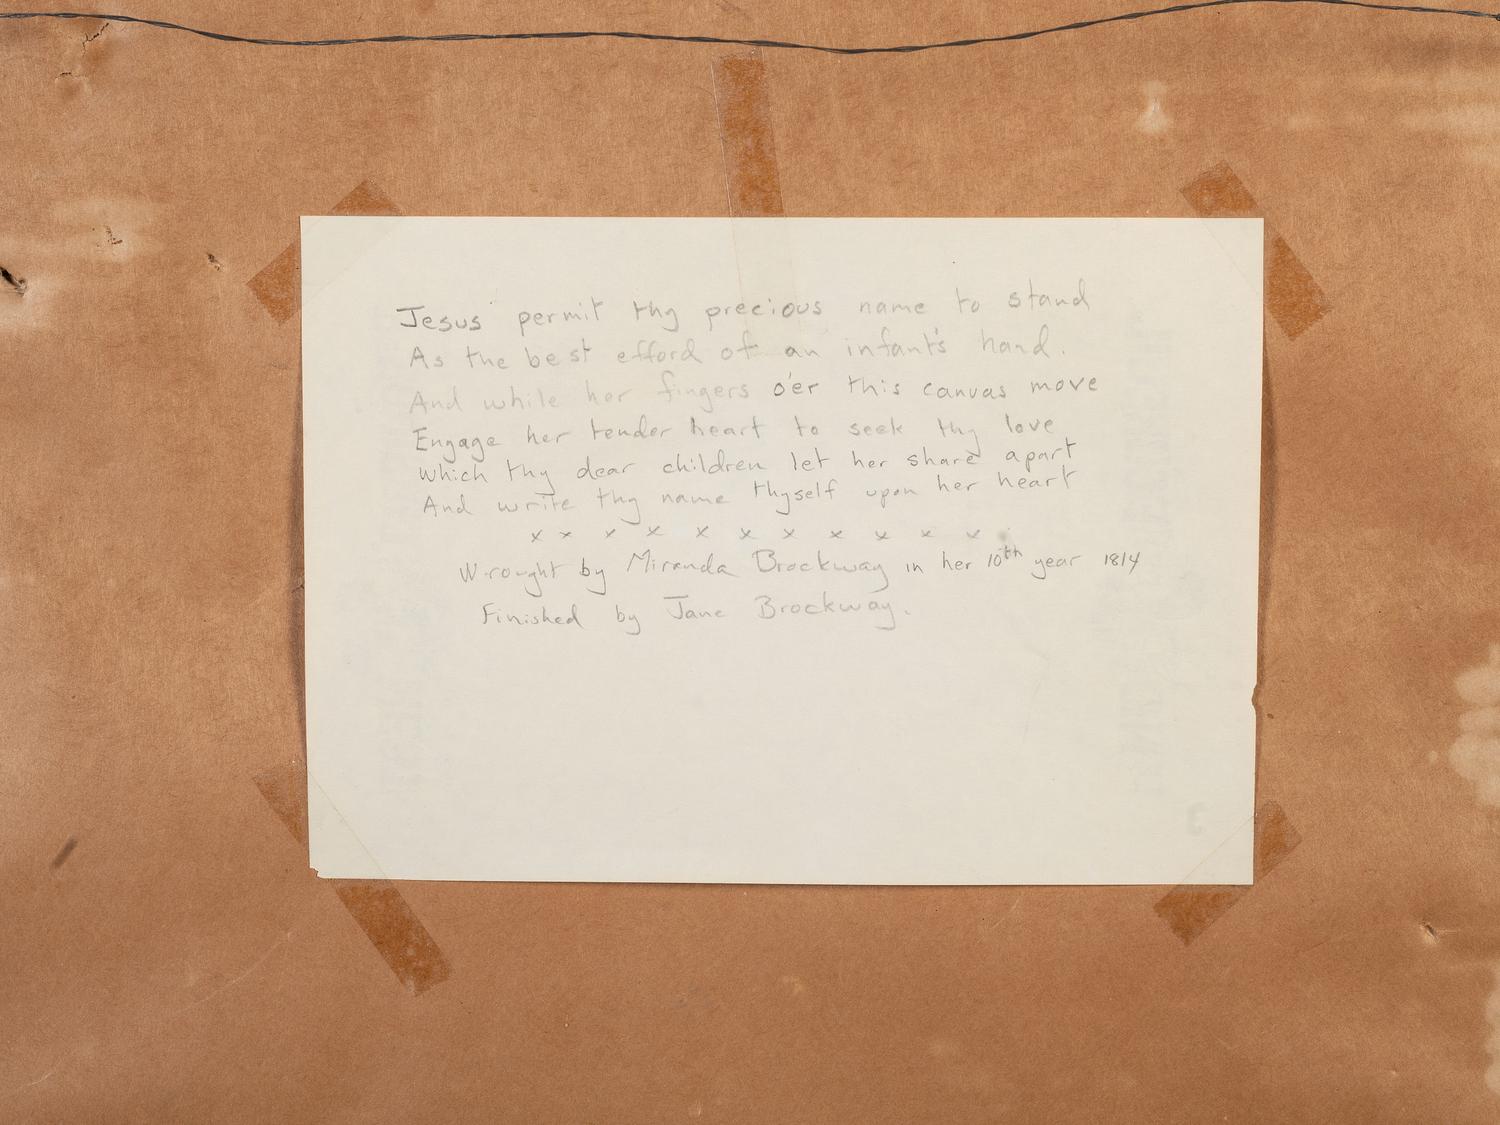 Jesus permit thy precious name to stand
As the best efford of an infant's hand.
And while her fingers o'er this canvas move
Engage her tender heart to seek thy love
which thy dear children let her share apart
And write thy name thyself upon her heart
x x x x x x x x x x x
Wrought by Miranda Brockway in her 10th year 1814
Finished by Jane Brockway.
3